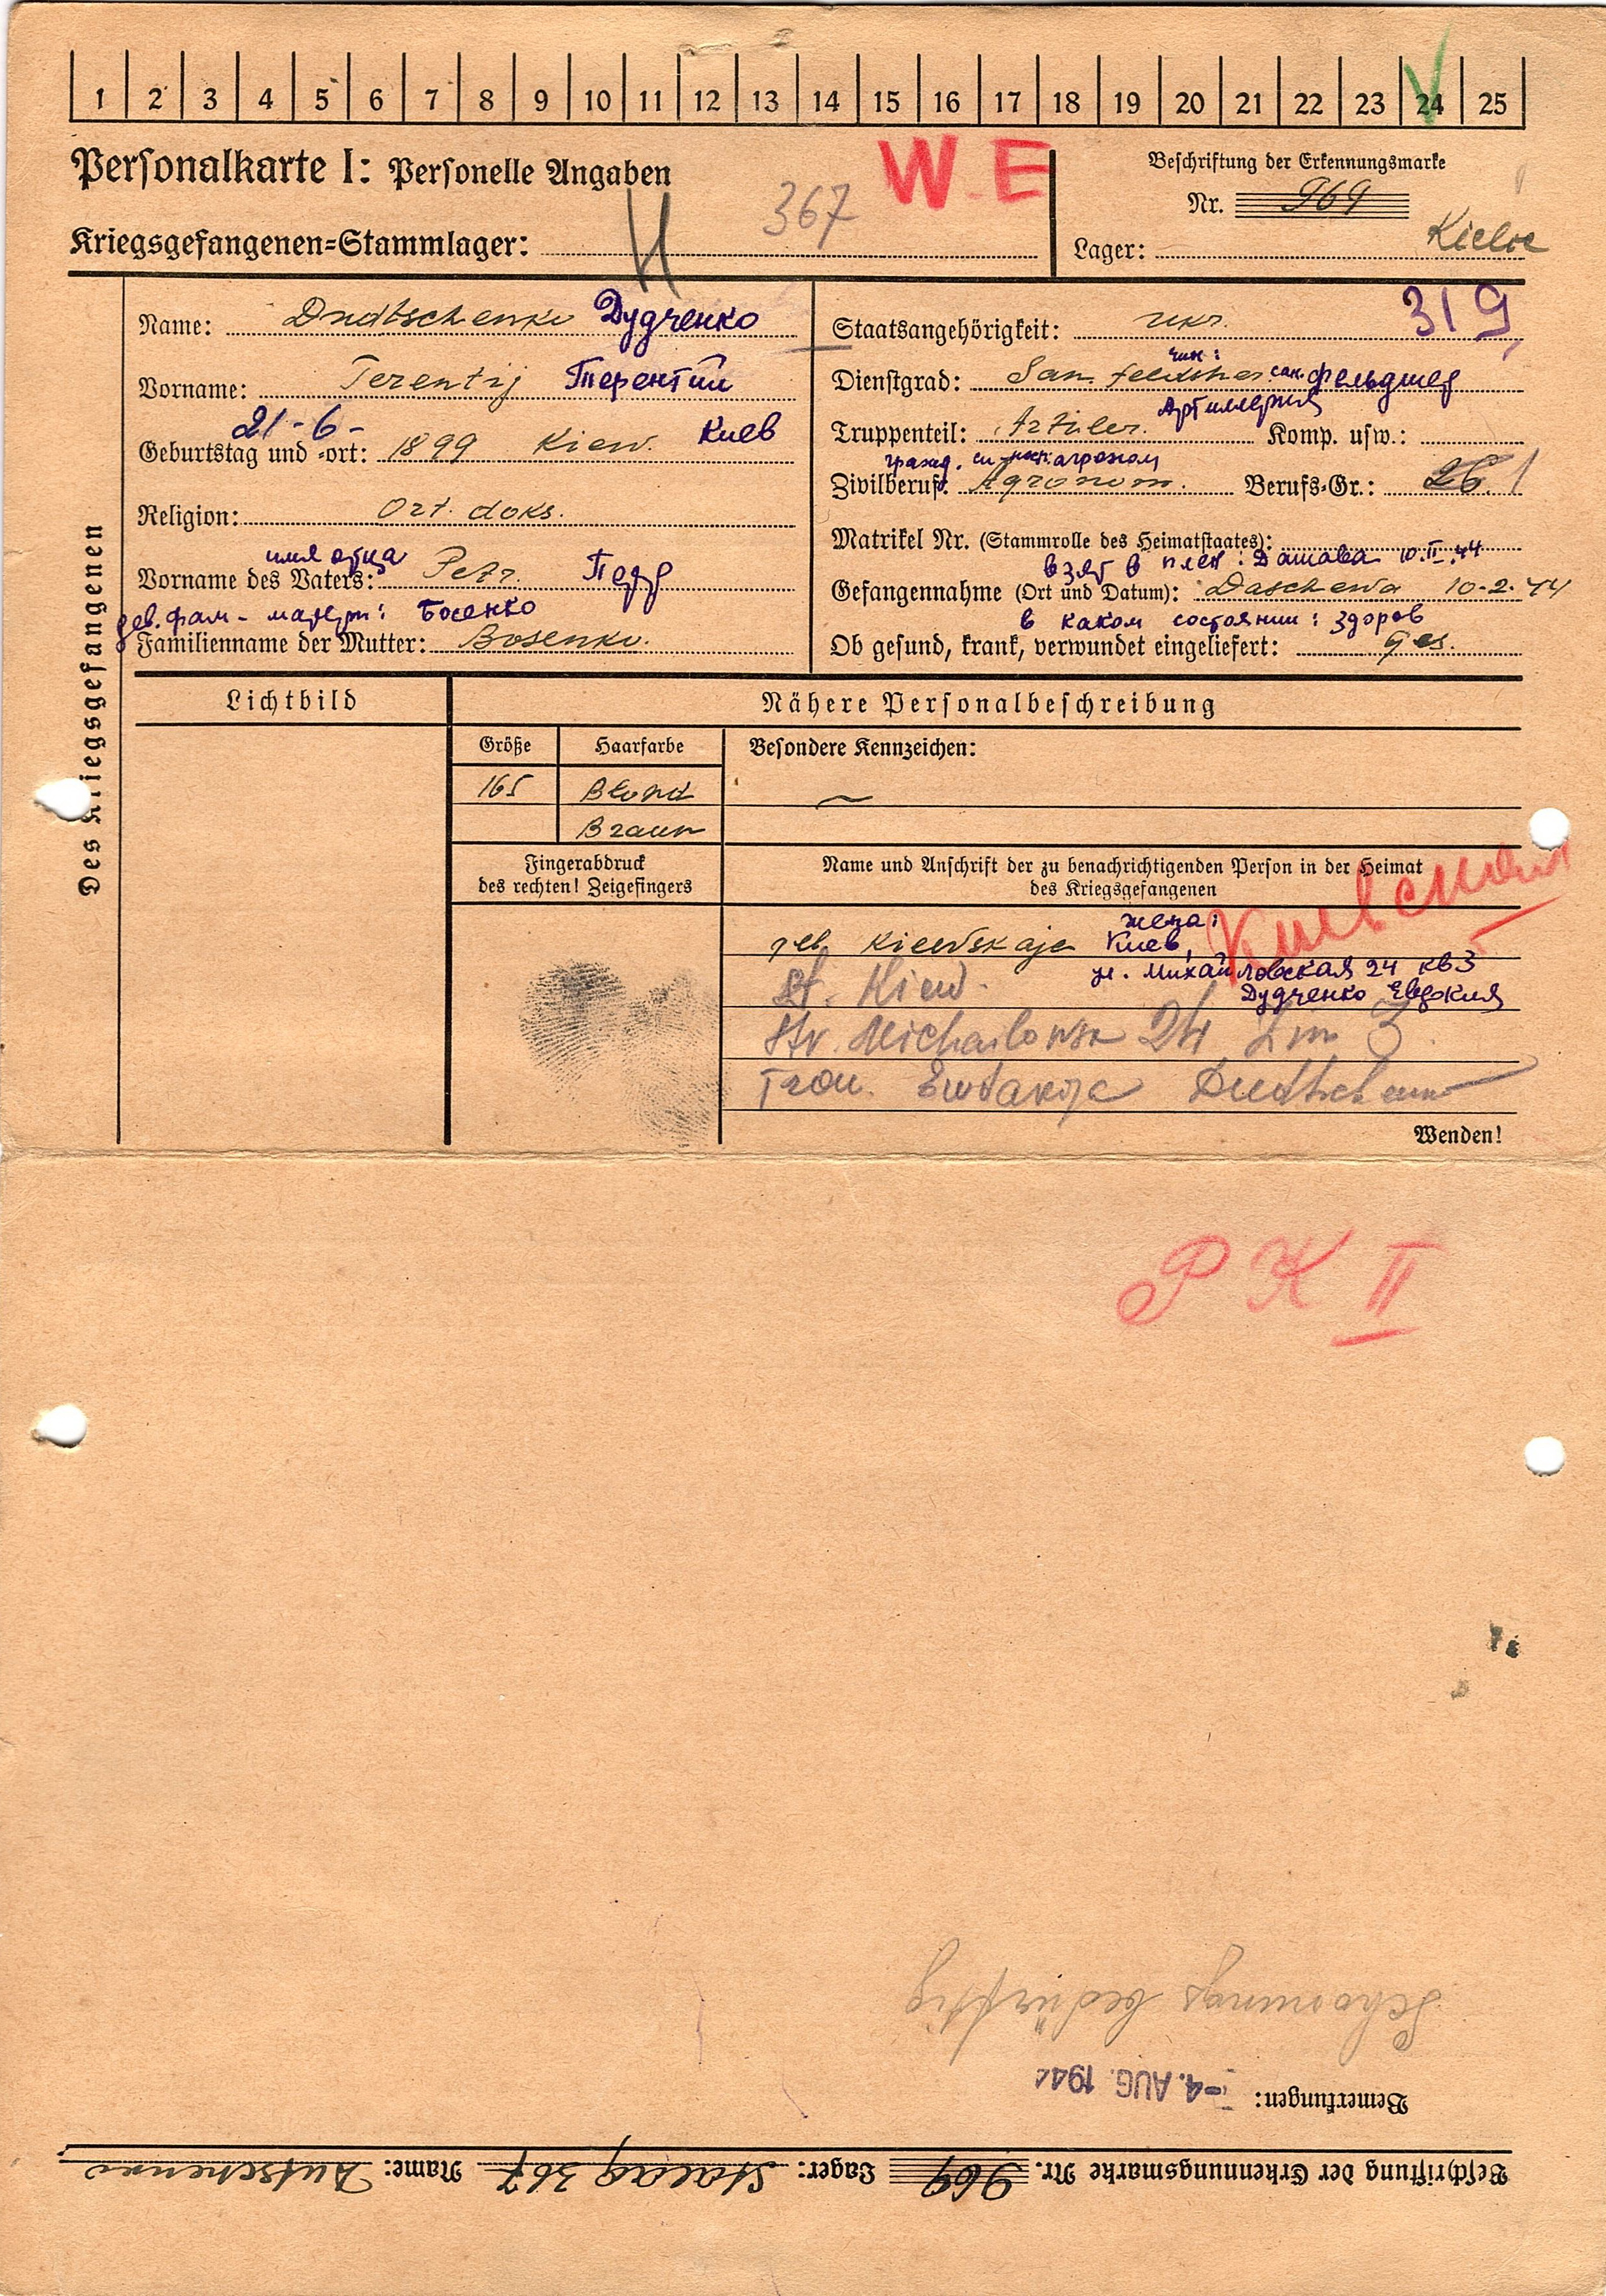 1 2 3 4 5 6 7 8 9 10 11 12 13 14 15 16 17 18 19 20 21 22 23 24 25
Personalkarte I: Personelle Angaben
W E
Beschriftung der Erkennungsmarke
367
Nr. 969
Kriegsgefangenen=Stammlager:
Lager: Kielce
Des Kriegsgefangenen
Name: Dudtschenko Дудченко
Vorname: Terentij Терентий
21-6-
Geburtstag und =ort: 1899 Kiew. Киев
Religion: Ort. doks.
имя отца
Vorname des Vaters: Petr. Петр
дев. фам - матери: Босенко
Familienname der Mutter: Bosenko.
319
Staatsangehörigkeit: ukr.
чин:
Dienstgrad: San. feldsher сан. фельдшер
Артиллерия
Truppenteil: Artiler. Komp. usw.:
агроном
Zivilberuf: Agronom. Berufs=Gr.: 26. 1
Matrikel Nr. (Stammrolle des Heimatstaates):
взят в плен: Дашава 10.II.44
Gefangennahme (Ort und Datum): Daschewa 10-2-44
в каком состоянии: здоров
Ob gesund, krank, verwundet eingeliefert: ges.
Lichtbild
Nähere Personalbeschreibung
Größe Haarfarbe Besondere Kennzeichen:
165 Blond
Braun
Fingerabdruck
des rechten! Zeigefingers
Name und Anschrift der zu benachrichtigenden Person in der Heimat
des Kriegsgefangenen
Киевский
жена:
geb. Kiewskaje Киев,
ул. Михайловская 24 кв 3
St. Kiew.
Дудченко Евдокия
Str. Michailowsk 24 3.
Frau. Ewdakija Dudtschenko
Wenden!
P K II
Schonungsbedürftig
Bemerkungen: -4. AUG. 194
Beschriftung der Erkennungsmarke Nr. 969 Lager: Stalag 367 Name: Dutschenko